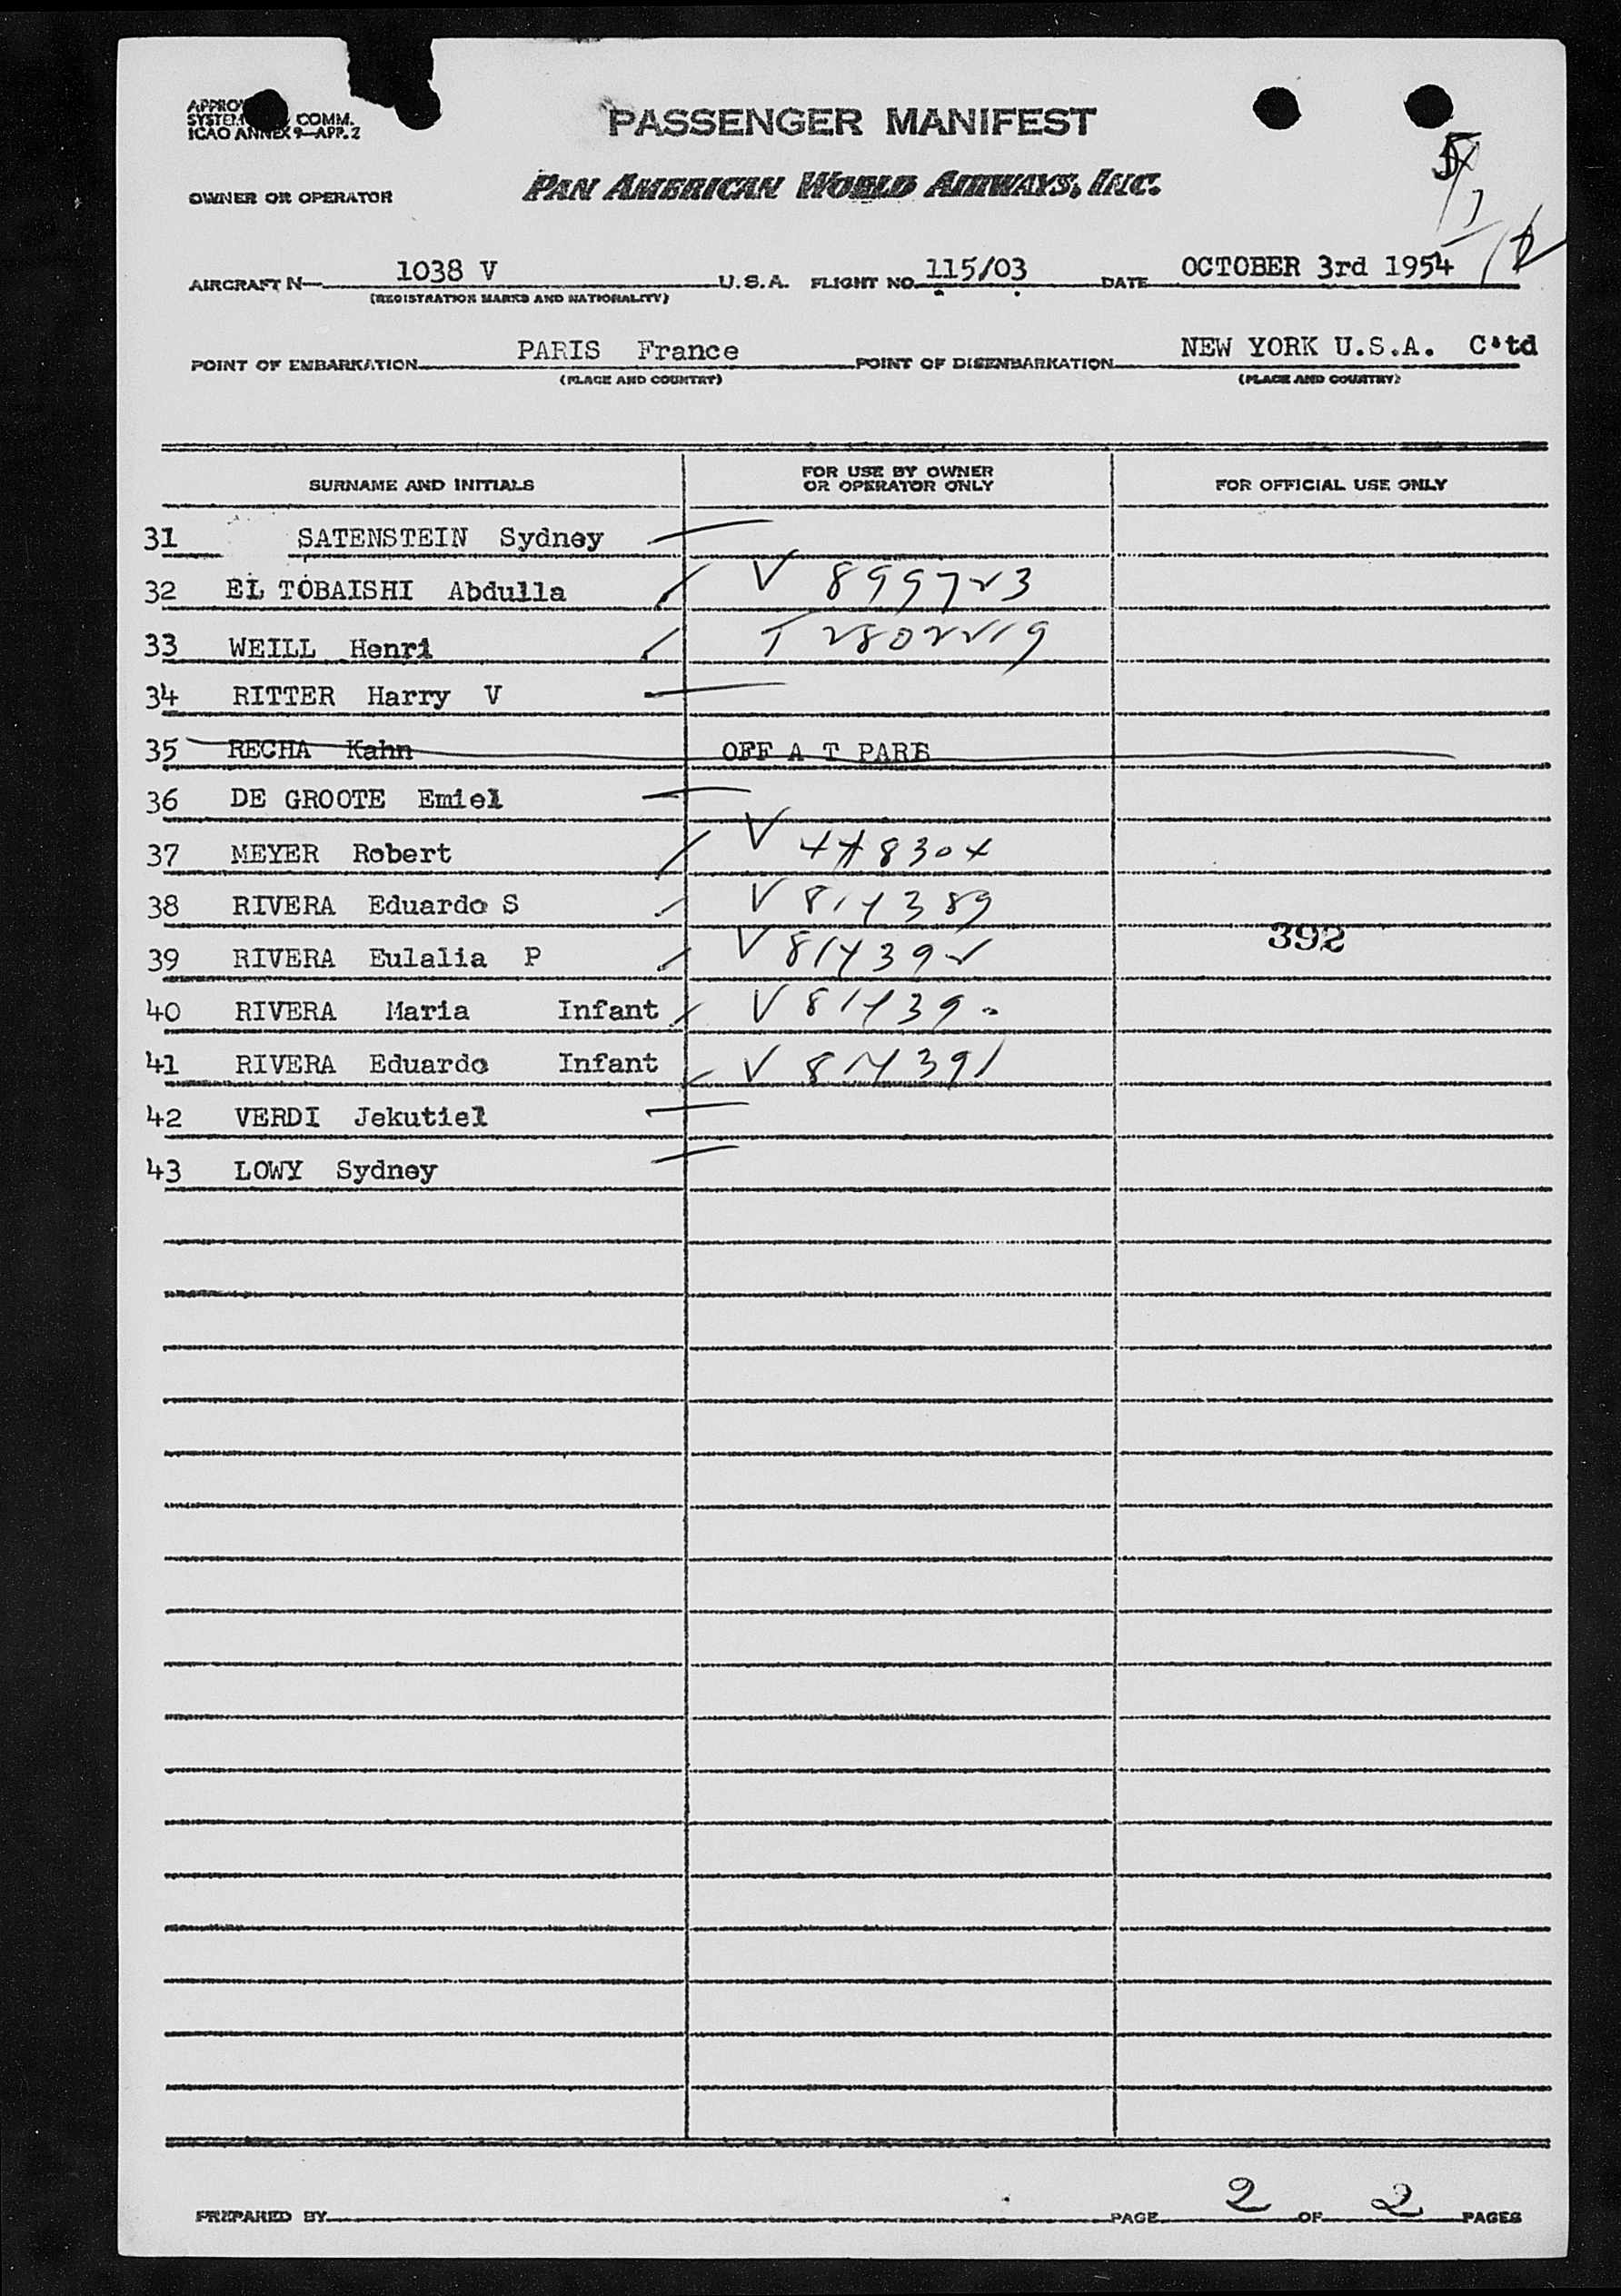 APPRO
SYSTEM COMM.
ICAO ANNEX 9—APP. 2
PASSENGER MANIFEST
OWNER OR OPERATOR PAN AMERICAN WORLD AIRWAYS, INC.
AIRCRAFT N— 1038 V U.S.A. FLIGHT NO. 115/03 DATE OCTOBER 3rd 1954
(REGISTRATION MARKS AND NATIONALITY)
POINT OF EMBARKATION PARIS France POINT OF DISEMBARKATION NEW YORK U.S.A. C'td
(PLACE AND COUNTRY) (PLACE AND COUNTRY)
SURNAME AND INITIALS FOR USE BY OWNER OR OPERATOR ONLY FOR OFFICIAL USE ONLY
31 SATENSTEIN Sydney
32 EL TOBAISHI Abdulla V 8999723
33 WEILL Henri T 2802219
34 RITTER Harry V
35 RECHA Kahn OFF A T PARE
36 DE GROOTE Emiel
37 MEYER Robert V 448304
38 RIVERA Eduardo S V 814389
39 RIVERA Eulalia P V 814392 392
40 RIVERA Maria Infant V 814390
41 RIVERA Eduardo Infant V 814391
42 VERDI Jekutiel
43 LOWY Sydney
PREPARED BY PAGE 2 OF 2 PAGES